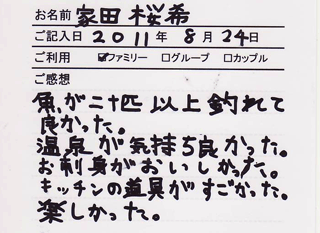 お名前 家田 桜希
ご記入日 2011年 8月 24日
ご利用 ☑ファミリー □グループ □カップル
ご感想
魚が二十匹以上釣れて
良かった。
温泉が気持ち良かった。
お刺身がおいしかった。
キッチンの道具がすごかった。
楽しかった。